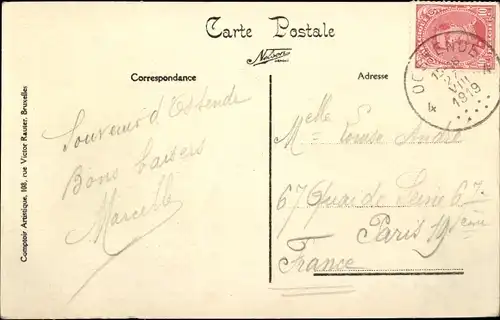 Carte Postale
Nelson
Correspondance
Adresse
Souvenir d'Ostende
Bons baisers
Marcelle
Melle Louise André
67 Quai de Seine 67
Paris 19ième
France
Comptoir Artistique, 108, rue Victor Rauter, Bruxelles
OOSTENDE
27
VIII
1919